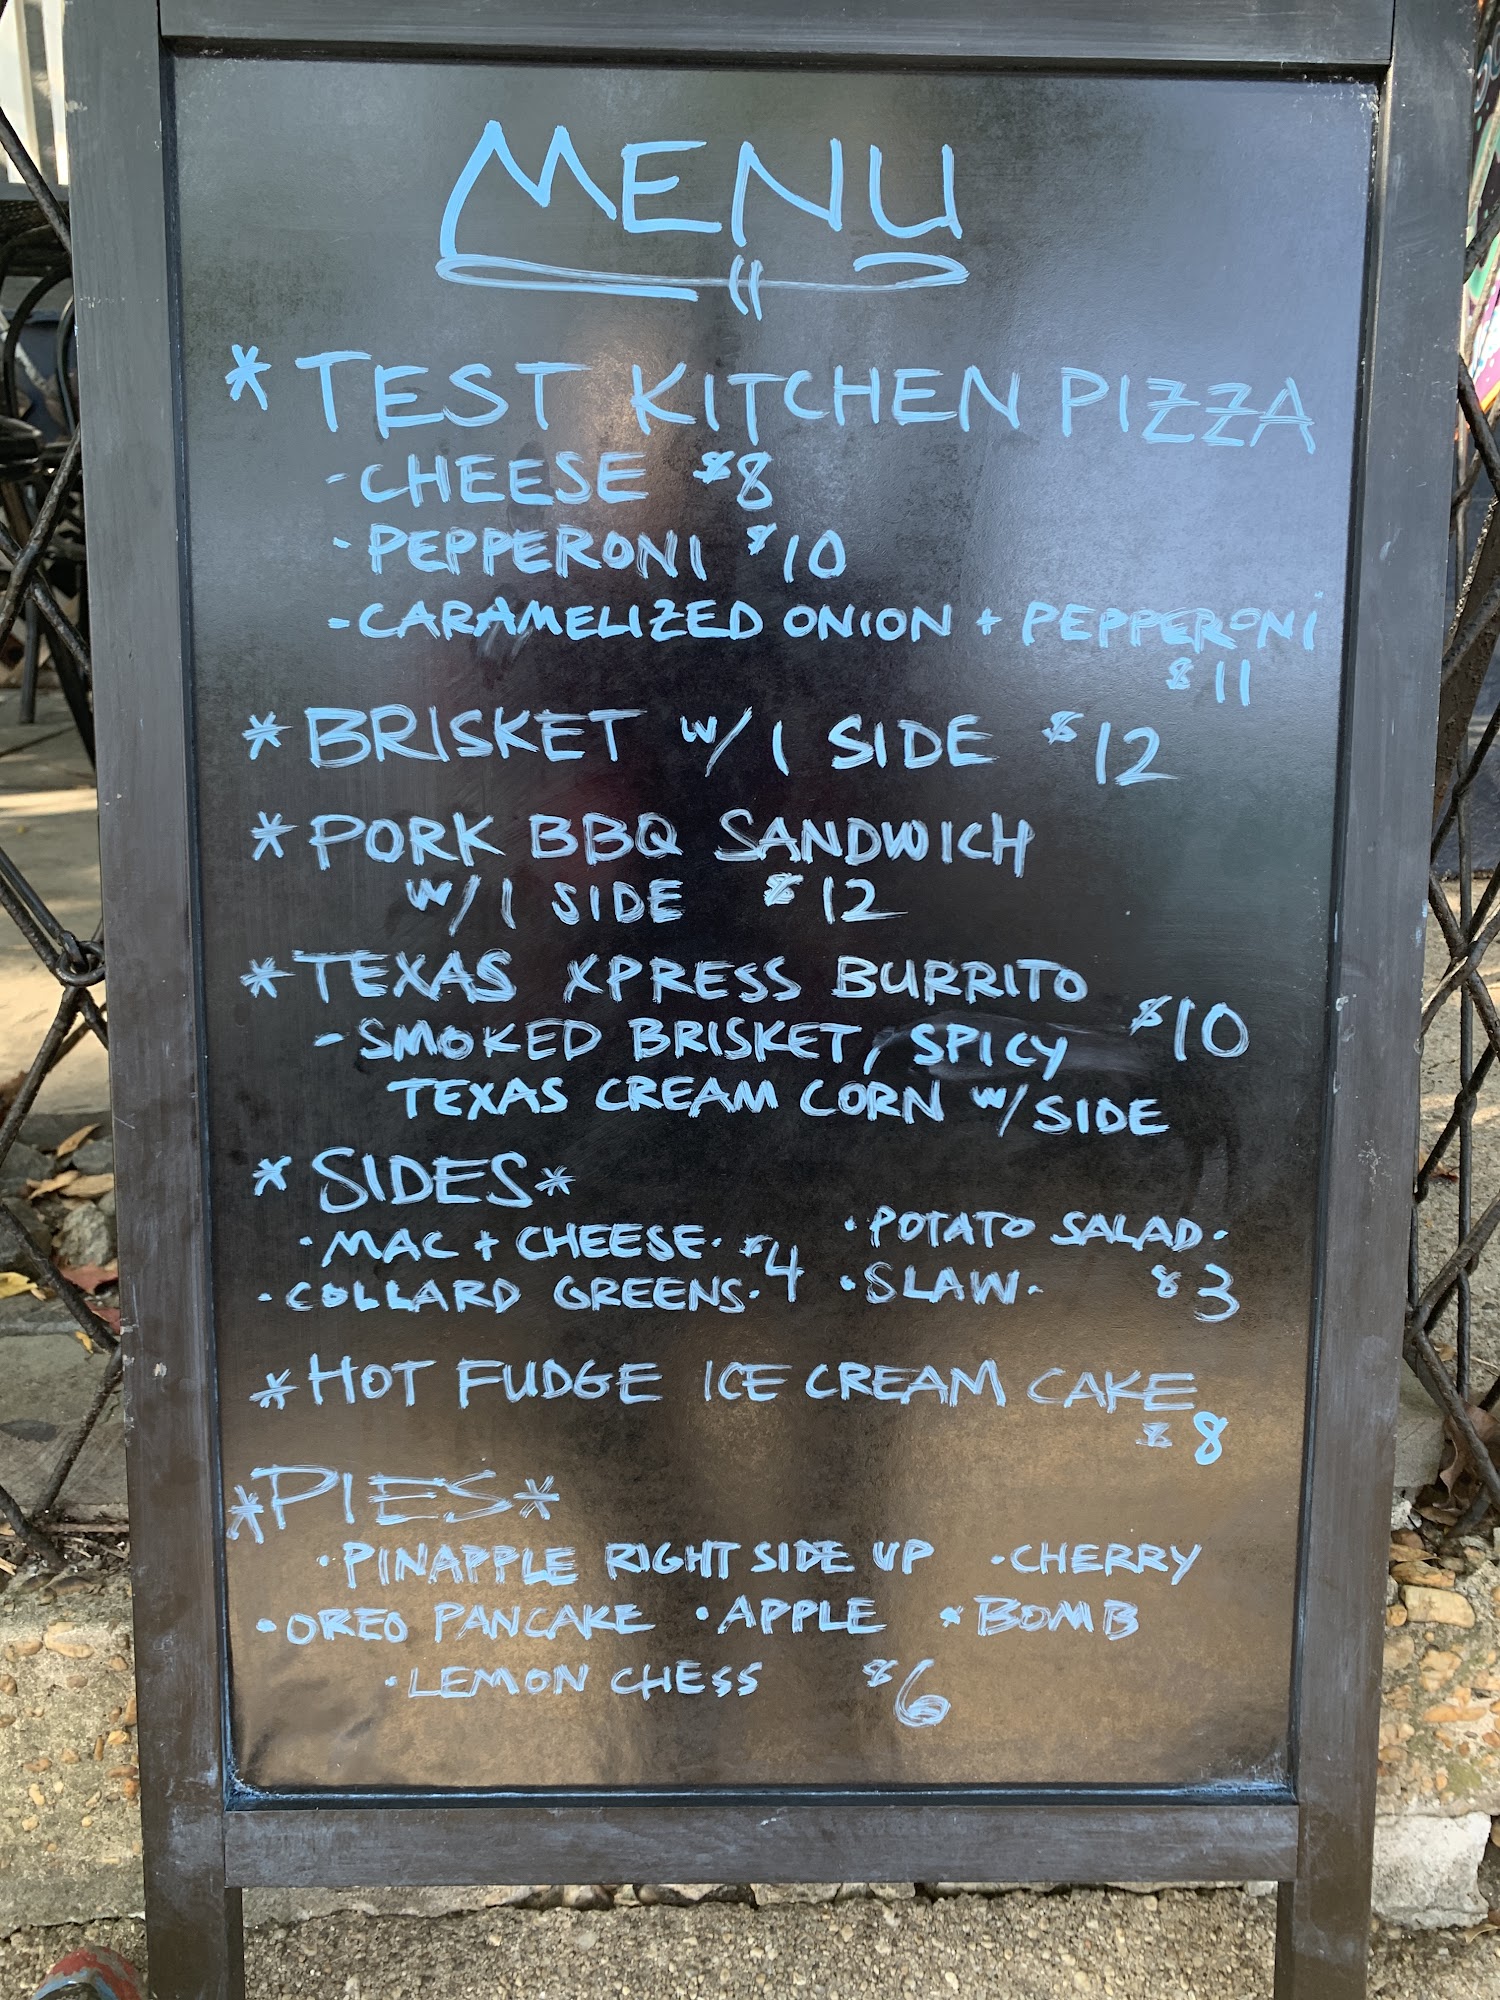 MENU
* TEST KITCHEN PIZZA
- CHEESE $8
- PEPPERONI $10
- CARAMELIZED ONION + PEPPERONI
$11
* BRISKET w/ 1 SIDE $12
* PORK BBQ SANDWICH
w/ 1 SIDE $12
* TEXAS XPRESS BURRITO
$10
- SMOKED BRISKET, SPICY
TEXAS CREAM CORN w/ SIDE
* SIDES *
· MAC + CHEESE · $4 · POTATO SALAD ·
· COLLARD GREENS · · SLAW · $3
* HOT FUDGE ICE CREAM CAKE
$8
* PIES *
· PINAPPLE RIGHT SIDE UP · CHERRY
· OREO PANCAKE · APPLE · BOMB
· LEMON CHESS $6